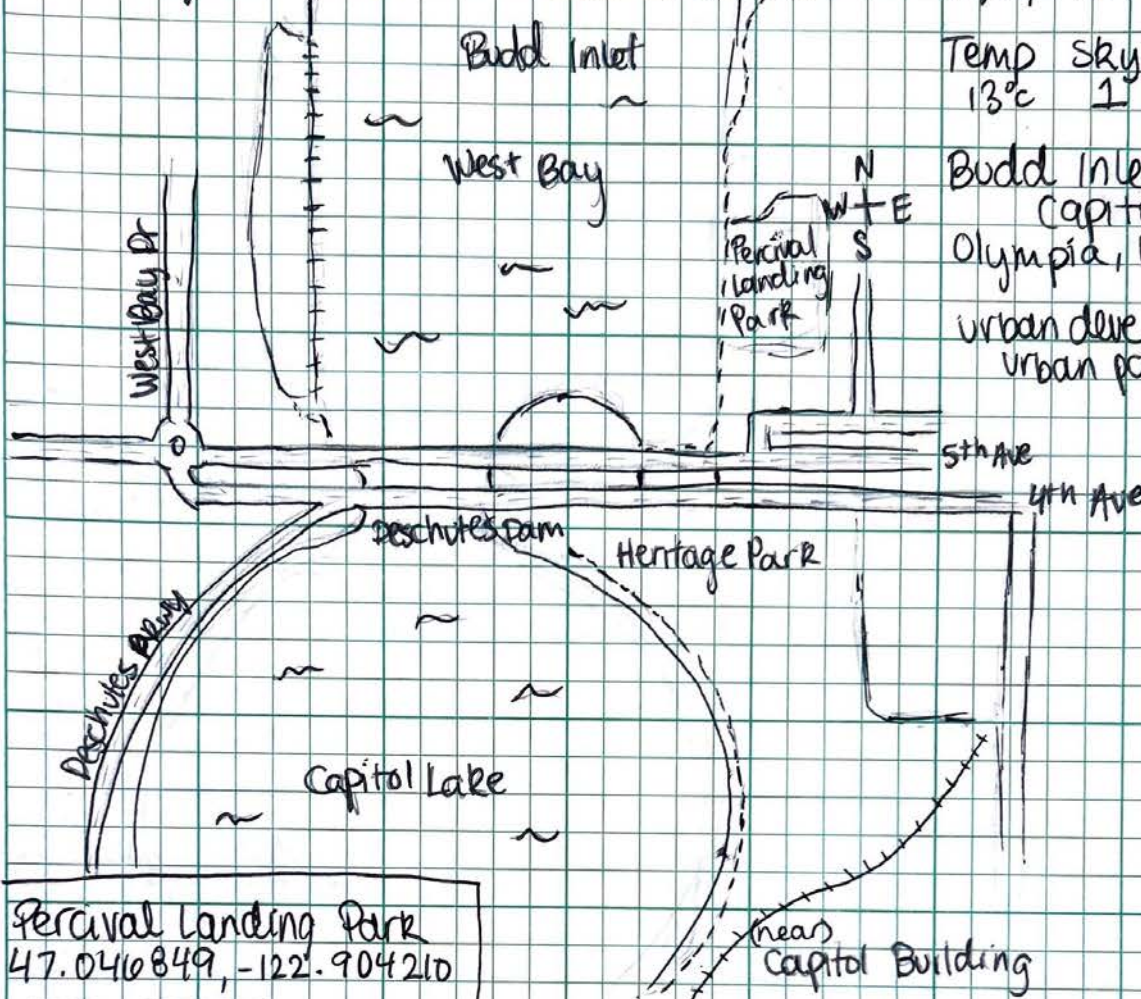 Budd Inlet
Temp Sky
13°C 1
West Bay
N
W E
S
Budd Inle
Capit
Olympia,
urban deve
urban po
Percival
Landing
Park
West Bay Dr
5th Ave
4th Ave
Deschutes Dam
Heritage Park
Deschutes
Capitol Lake
Percival Landing Park
47.046849, -122.904210
(near)
Capitol Building